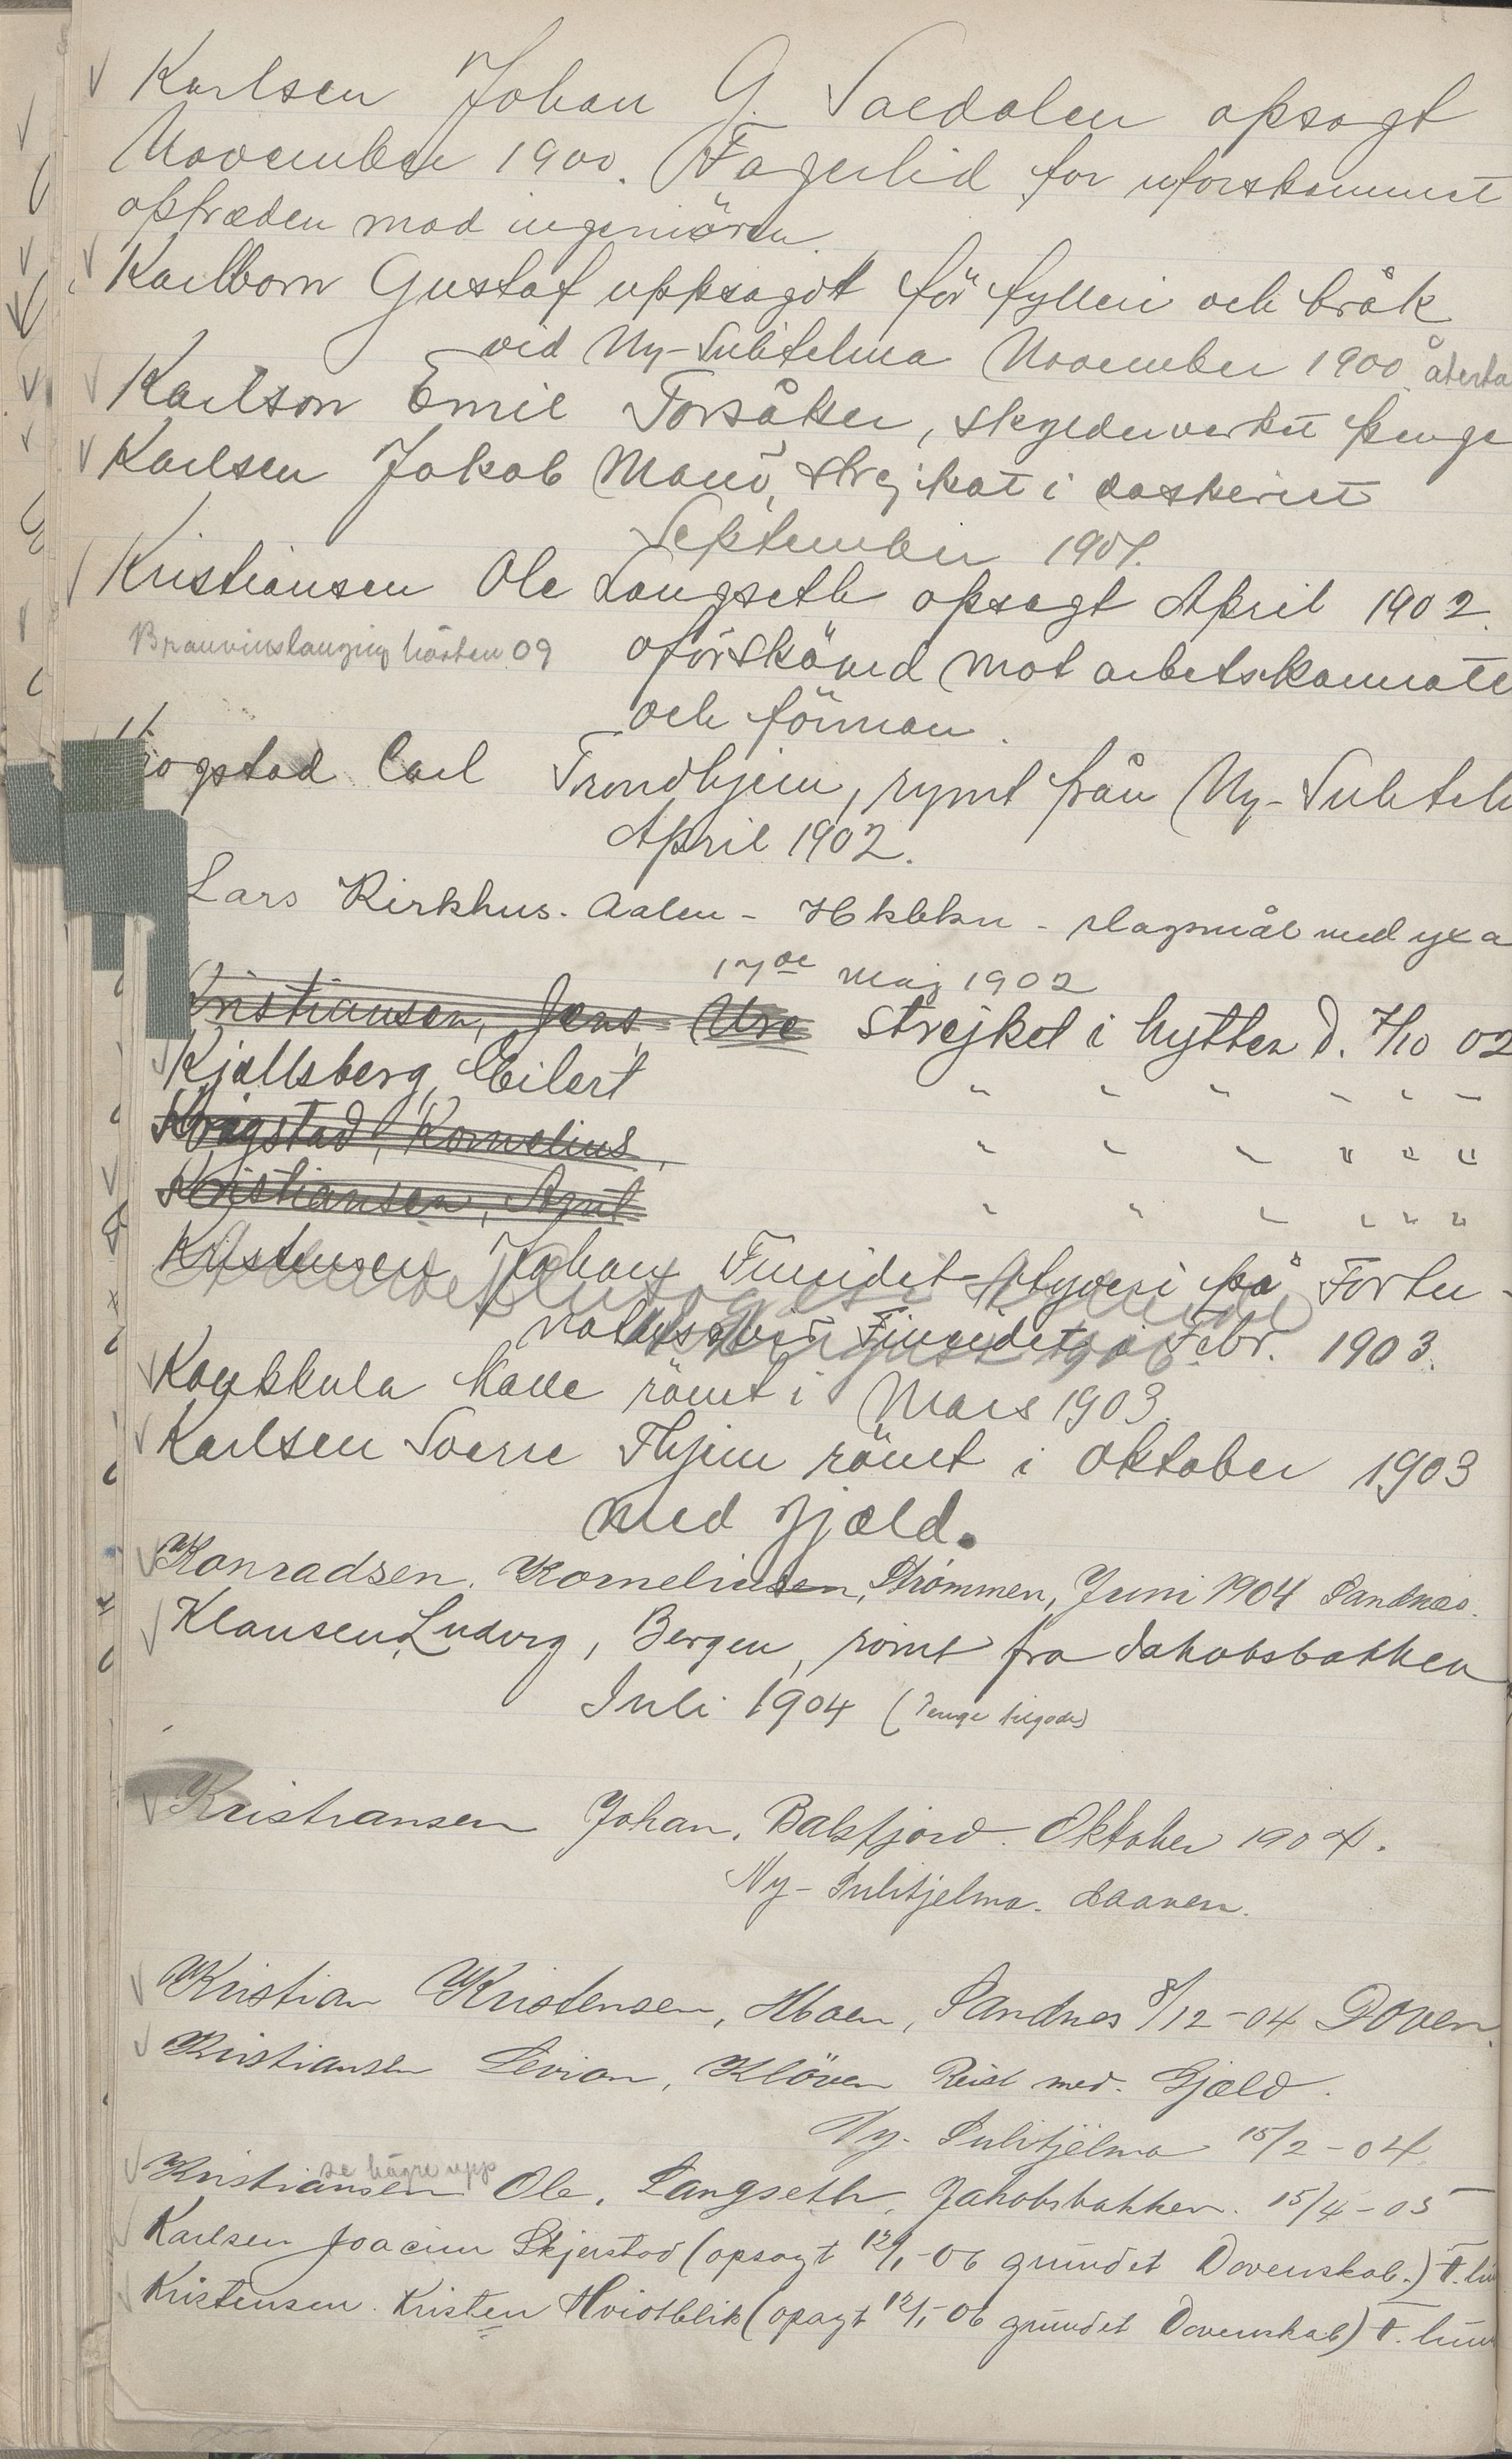 Karlsen Johan G. Saedalen opsagt
November 1900. Fagerlid for uforskammet
optræden mod ingeniören.
Karlbom Gustaf uppsagdt för fylleri och bråk
vid Ny-Sulitelma November 1900 återta
Karlson Emil Torsåker, skylder verket penge
Karlsen Jakob Mo strejkat i vaskeriet
September 1901.
Kristiansen Ole Langseth opsagt April 1902.
Brännvinslangning hösten 09
oförskämd mot arbetskamrate
och förman.
Krogstad Carl Trondhjem, rymt från Ny-Sulitel
April 1902.
Lars Kirkhus. Aalen - slagsmål med yxa
17de maj 1902
Kristiansen, Jens, Ure strejket i hytten d. 7/10 02
Kjellsberg, Eilert " " " " " "
Krogstad, Kornelius, " " " " " "
Kristiansen, Arnt " " " " " "
Kristensen Johan Fineidet tyveri på Fortu-
vid Fineidet i Febr. 1903.
Koukkula Kalle römt i Mars 1903.
Karlsen Sverre Thjem römt i Oktober 1903
med gjæld.
Konradsen, Korneliusen, Strømmen, Juni 1904 Sandnæs.
Klausen, Ludvig, Bergen, römt fra Jakobsbakken
Juli 1904 (Penge tilgode)
Kristiansen Johan. Balsfjord. Oktober 1904.
Ny-Sulitjelma.
Kristian Kristensen, Sandnes 8/12-04 Doven.
Kristiansen Klöven Reist med. Gjæld.
Ny-Sulitjelma 15/2-04
se högre upp
Kristiansen Ole. Langseth. Jakobsbakken. 15/4-05
Karlsen Joacim Skjerstad (opsagt 12/1-06 grundet Dovenskab.)
Kristensen. Kristen Hvidblik (opagt 12/1-06 grundet Dovenskab)